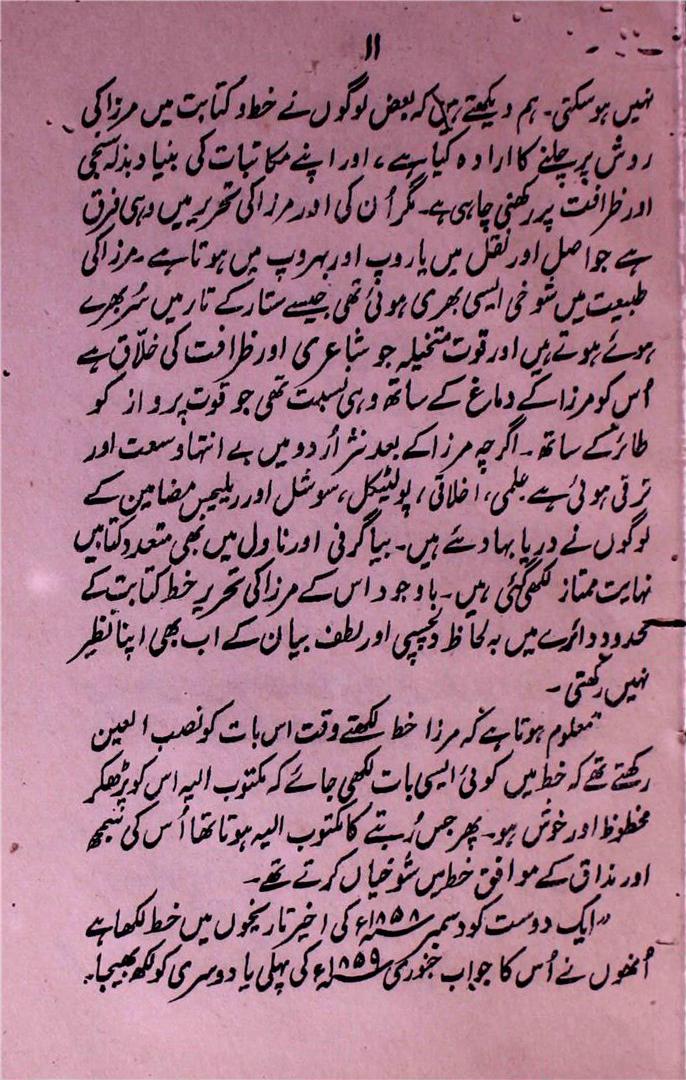 ۱۱
نہیں ہوسکتی۔ ہم دیکھتے ہیں کہ بعض لوگوں نے خط و کتابت میں مرزا کی
روش پر چلنے کا ارادہ کیا ہے، اور اپنے مکاتبات کی بنیاد بذلہ سنجی
اور ظرافت پر رکھنی چاہی ہے۔ مگر اُن کی اور مرزا کی تحریر میں وہی فرق
ہے جو اصل اور نقل میں یا روپ اور بہروپ میں ہوتا ہے۔ مرزا کی
طبیعت میں شوخی ایسی بھری ہوئی تھی جیسے ستار کے تار میں سُر بھرے
ہوئے ہوتے ہیں اور قوت متخیلہ جو شاعری اور ظرافت کی خلّاق ہے
اُس کو مرزا کے دماغ کے ساتھ وہی نسبت تھی جو قوت پرواز کو
طائر کے ساتھ۔ اگرچہ مرزا کے بعد نثر اُردو میں بے انتہا وسعت اور
ترقی ہوئی ہے علمی، اخلاقی، پولٹیکل، سوشل اور ریلیجس مضامین کے
لوگوں نے دریا بہا دئے ہیں۔ بیاگرفی اور ناول میں بھی متعدد کتابیں
نہایت ممتاز لکھی گئی ہیں۔ باوجود اس کے مرزا کی تحریر خط کتابت کے
محدود دائرے میں بہ لحاظ دلچسپی اور لطف بیان کے اب بھی اپنا نظیر
نہیں رکھتی۔
"معلوم ہوتا ہے کہ مرزا خط لکھتے وقت اس بات کو نصب العین
رکھتے تھے کہ خط میں کوئی ایسی بات لکھی جائے کہ مکتوب الیہ اس کو پڑھکر
محظوظ اور خوش ہو۔ پھر جس رُتبے کا مکتوب الیہ ہوتا تھا اُس کی سمجھ
اور مذاق کے موافق خط میں شوخیاں کرتے تھے۔
"ایک دوست کو دسمبر ۱۸۵۸ء کی اخیر تاریخوں میں خط لکھا ہے
اُنھوں نے اُس کا جواب جنوری ۱۸۵۹ء کی پہلی یا دوسری کو لکھ بھیجا۔